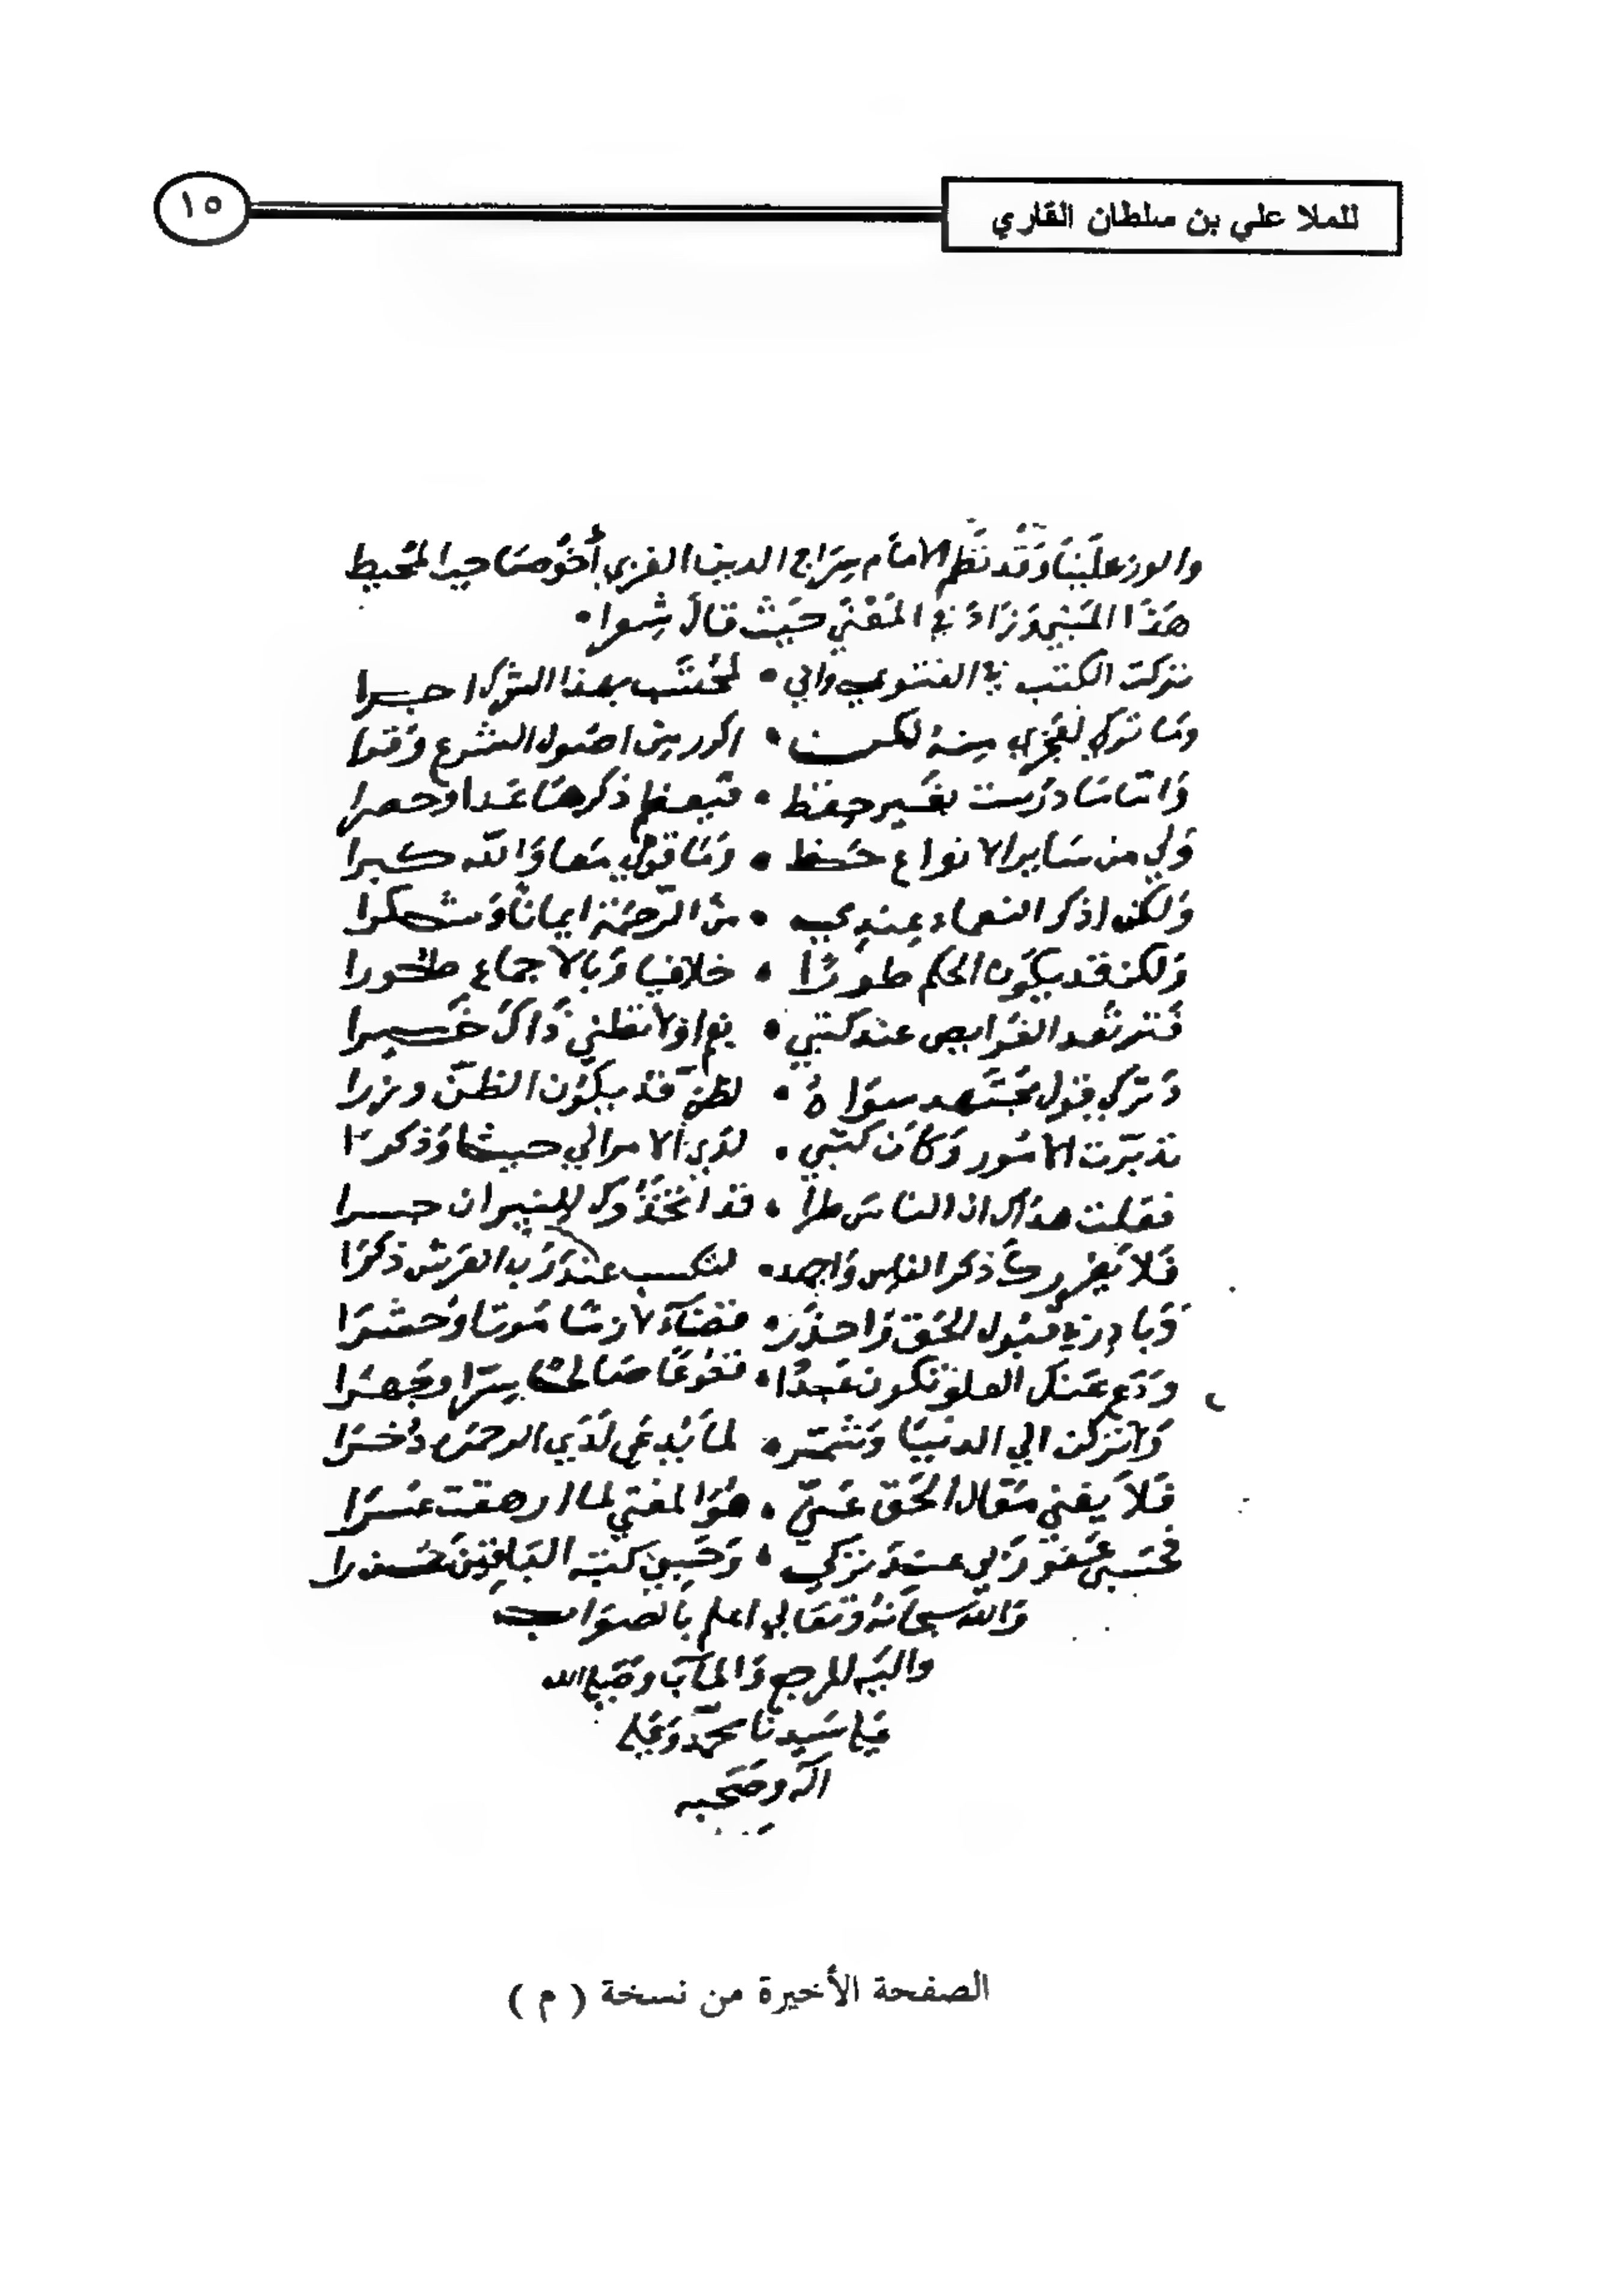 للملا علي بن سلطان القاري
١٥
والوزر علينا وقد نظم الامام سراج الدين الغزي أخو صاحب المحيط
هذا المبني وزاد في المعنى حيث قال شعرا
تركت الكتب في الفتوى واني • لمحتسب بهذا الترك اجرا
وما تركي لعجزي منه لكن • اكرر من اصول الشرع وقرا
واتا ما درست بغير حفظ • ذكرها عدا وحصرا
ولي من ساير الانواع حفظ • وما قولي معا والله كبرا
ولكن اذكر النعماء عندي • من الرحمن ايمانا وشكرا
ولكن قد يكون الحكم طورا • خلافيا وبالاجماع طورا
عند كتبي • نعم اولا تظني ذاك خسرا
وتركي قول مجتهد سواه • لظن قد يكون الظن وزرا
تدبرت الامور وكان كتبي • لذي الامر الي حيثا وذكرا
فقلت هداك ان الناس طرا • قد اتخذوك للنيران جسرا
فلا يغررك ذكر الناس واجهد • لتكسب عند رب العرش ذكرا
وبادر في قبول الحق واحذر • قضاء لازما موتا وحشرا
ودع عنك العلو تكون عبدا • صالحا سرا وجهرا
ولا تركن الي الدنيا وشمر • لما يدعى لدي الرحمن ذخرا
فلا يغني مقال الحق عني • هو المفتي لما ارهقت عسرا
فحسبي عفو ربي عند تركي • وحسبي كتبه الباقين
والله سبحانه وتعالى اعلم بالصواب
واليه المرجع والمآب وصلى الله
على سيدنا محمد وعلى
اله وصحبه
الصفحة الأخيرة من نسخة ( م )